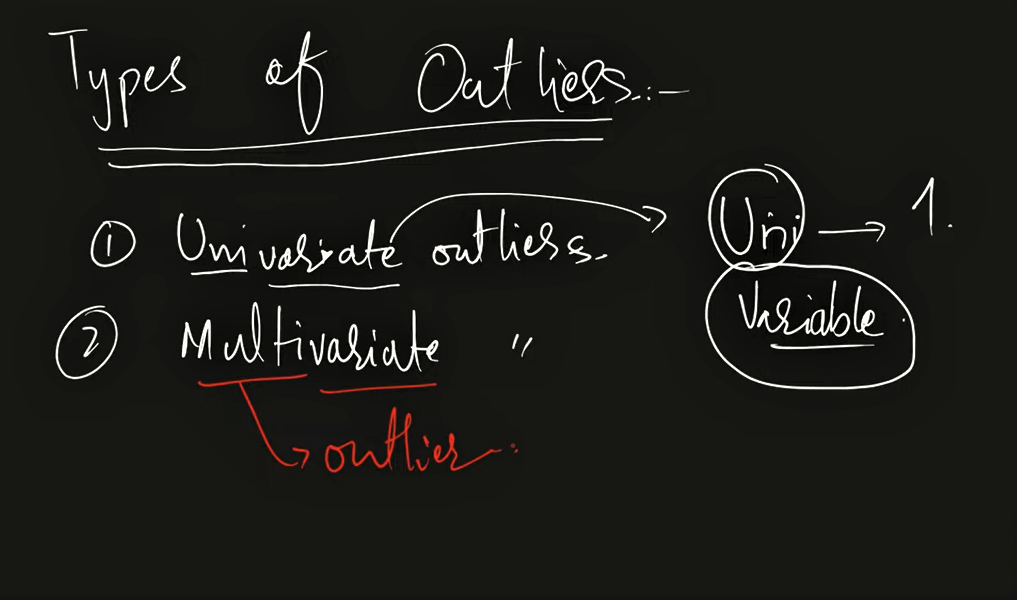 Types of Outliers :-
① Univariate outliers.
Uni → 1.
Variable.
② Multivariate "
outlier